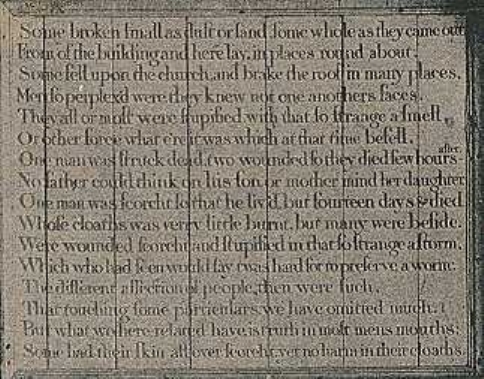 Some broken ſmall as duſt or ſand ſome whole as they came out
From of the building and here lay, in places round about.
Some fell upon the church, and brake the roof in many places.
Men ſo perplexd were they knew not one anothers faces.
They all or moſt were ſtupified with that ſo ſtrange a ſmell,
Or other force what e're it was which at that time befell.
One man was ſtruck dead, two wounded ſo they died few hours after.
No father could think on his ſon, or mother mind her daughter.
One man was ſcorcht ſo that he liv'd, but fourteen days & died.
Whoſe cloaths was verry little burnt, but many were beſide.
Were wounded ſcorcht and ſtupified in that ſo ſtrange a ſtorm.
Which who had ſeen would ſay twas hard for to preſerve a worm.
The different affection of people, then were ſuch.
That touching ſome particulars we have omitted much.
But what we here related have is truth in moſt mens mouths:
Some had their ſkin all over ſcorcht, yet no harm in their cloaths.